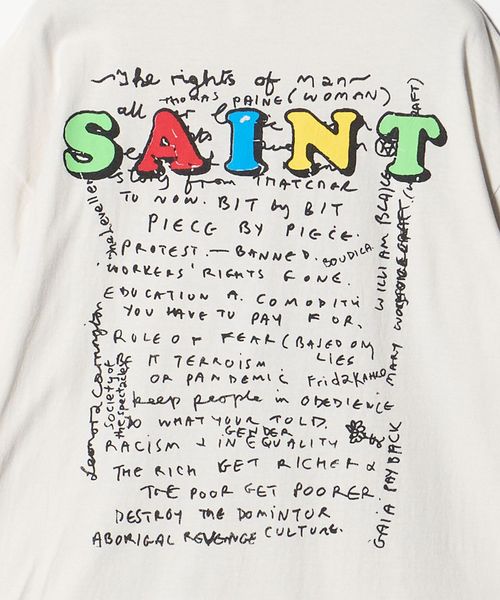 ~The rights of man~
THOMAS PAINE (WOMAN)
all
SAINT
from THATCHER
TO NOW. BIT by BIT
PIECE BY PIECE.
PROTEST. — BANNED. BOUDICA.
WORKERS' RIGHTS GONE.
EDUCATION A. COMODITY
YOU HAVE TO PAY FOR.
RULE OF FEAR (BASED ON
LIES
BE IT TERROISM
OR PANDEMIC Frida KAHLO
keep people in OBEDIENCE
DO WHAT YOUR TOLD.
GENDER
RACISM + INEQUALITY
THE RICH GET RICHER &
THE POOR GET POORER.
DESTROY THE DOMINTOR
ABORIGAL REVENGE CULTURE.
the Levellers
Leonora Carrington
Society of
the spectacle
WILLIAM BLAKE
MARY
GAIA PAYBACK